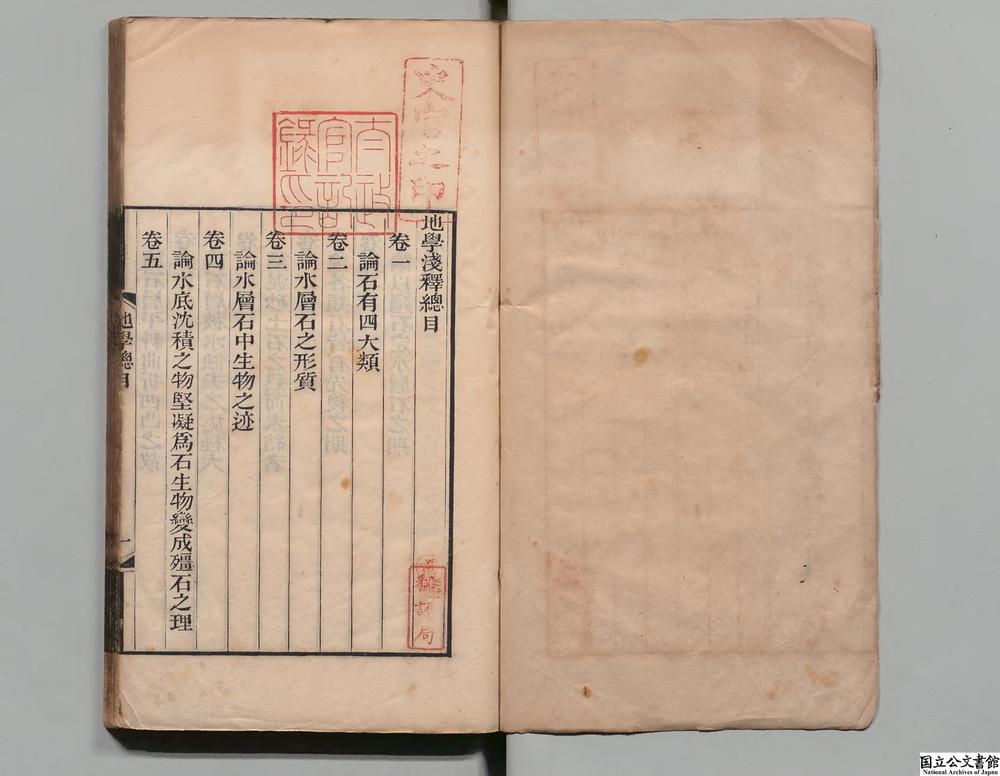 地學淺釋總目
卷一
論石有四大類
卷二
論水層石之形質
卷三
論水層石中生物之迹
卷四
論水底沈積之物堅凝爲石生物變成殭石之理
卷五
地學總目
一
史官之印
太政
官記
錄印
飜譯局
国立公文書館
National Archives of Japan